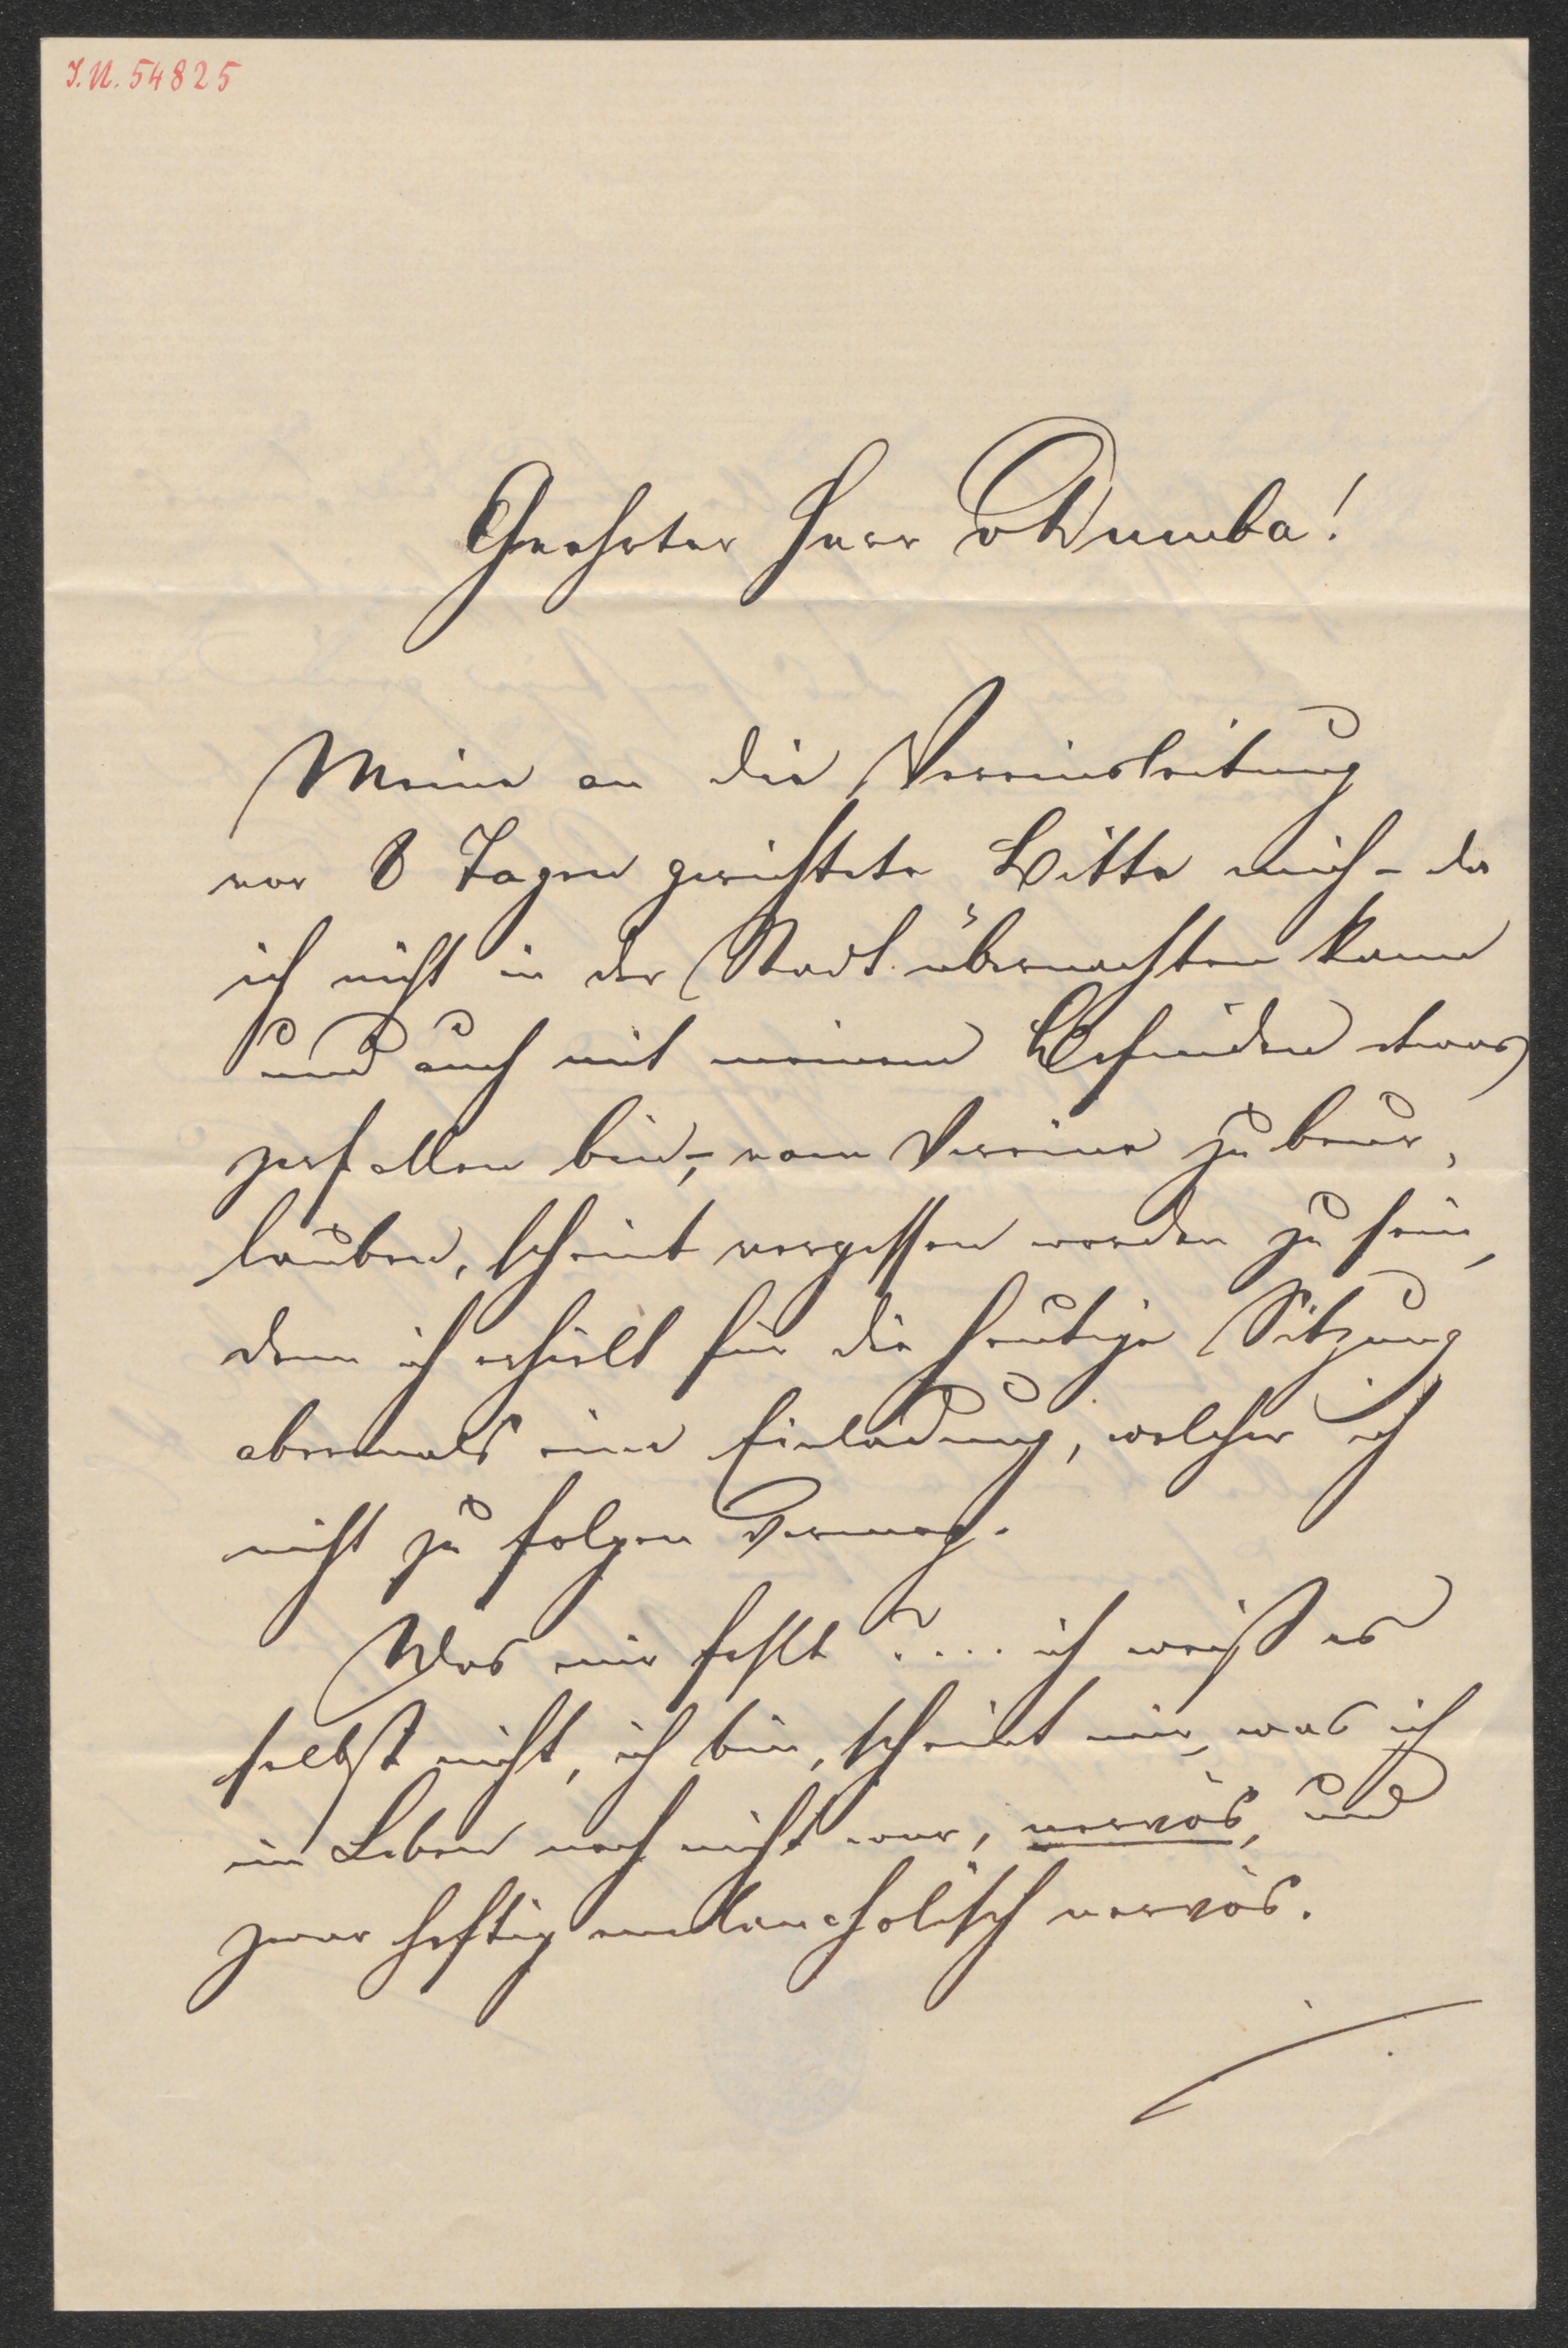 I.N. 54825
Geehrter Herr v Dumba!
Meine an die Vereinsleitung
vor 8 Tagen gerichtete Bitte mich – da
ich nicht in der Stadt übernachten kann
und auch mit meinem Befinden etwas
zerfallen bin –, vom Vereine zu beur„
lauben, scheint vergessen worden zu sein,
denn ich erhielt für die heutige Sitzung
abermals eine Einladung, welcher ich
nicht zu folgen vermag.
Was mir fehlt? .... ich weiß es
selbst nicht, ich bin, scheint mir, was ich
im Leben noch nicht war, nervös, und
zwar heftig melancholisch nervös.